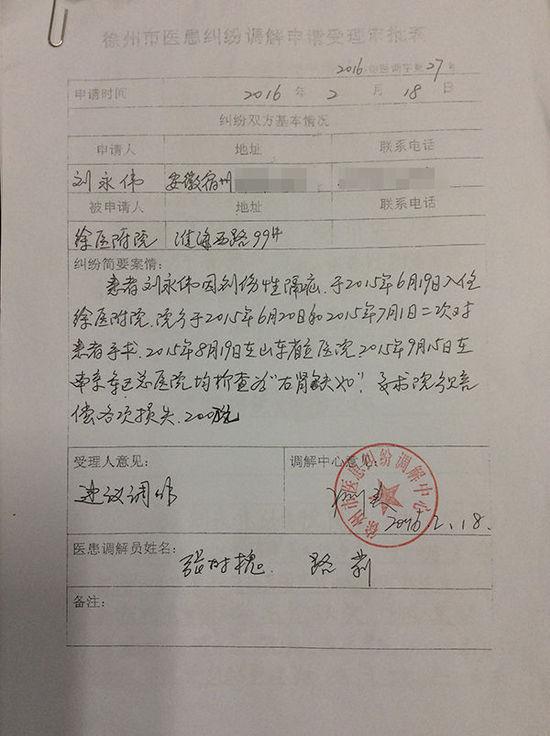 徐州市医患纠纷调解申请受理审批表
2016 医调字第27号
申请时间 2016 年 2 月 18 日
纠纷双方基本情况
申请人 地址 联系电话
刘永伟 安徽宿州
被申请人 地址 联系电话
徐医附院 淮海西路99#
纠纷简要案情：
患者刘永伟因创伤性隔疝.于2015年6月19日入住
徐医附院.院方于2015年6月20日和2015年7月1日二次对
患者手术.2015年8月19日在山东省立医院.2015年9月15日在
南京军区总医院均检查为"右肾缺如".要求院方赔
偿各项损失.200万元
受理人意见： 调解中心意见：
建议调解 同意
2016.2.18.
徐州市医患纠纷调解中心
医患调解员姓名：
张时槐. 路莉
备注：